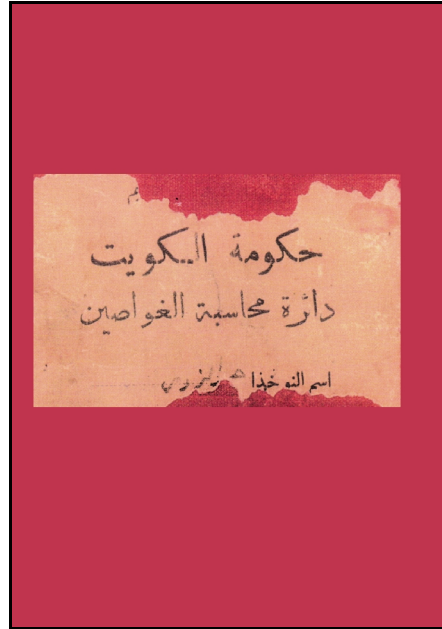 حكومة الكويت
دائرة محاسبة الغواصين
اسم النوخذا